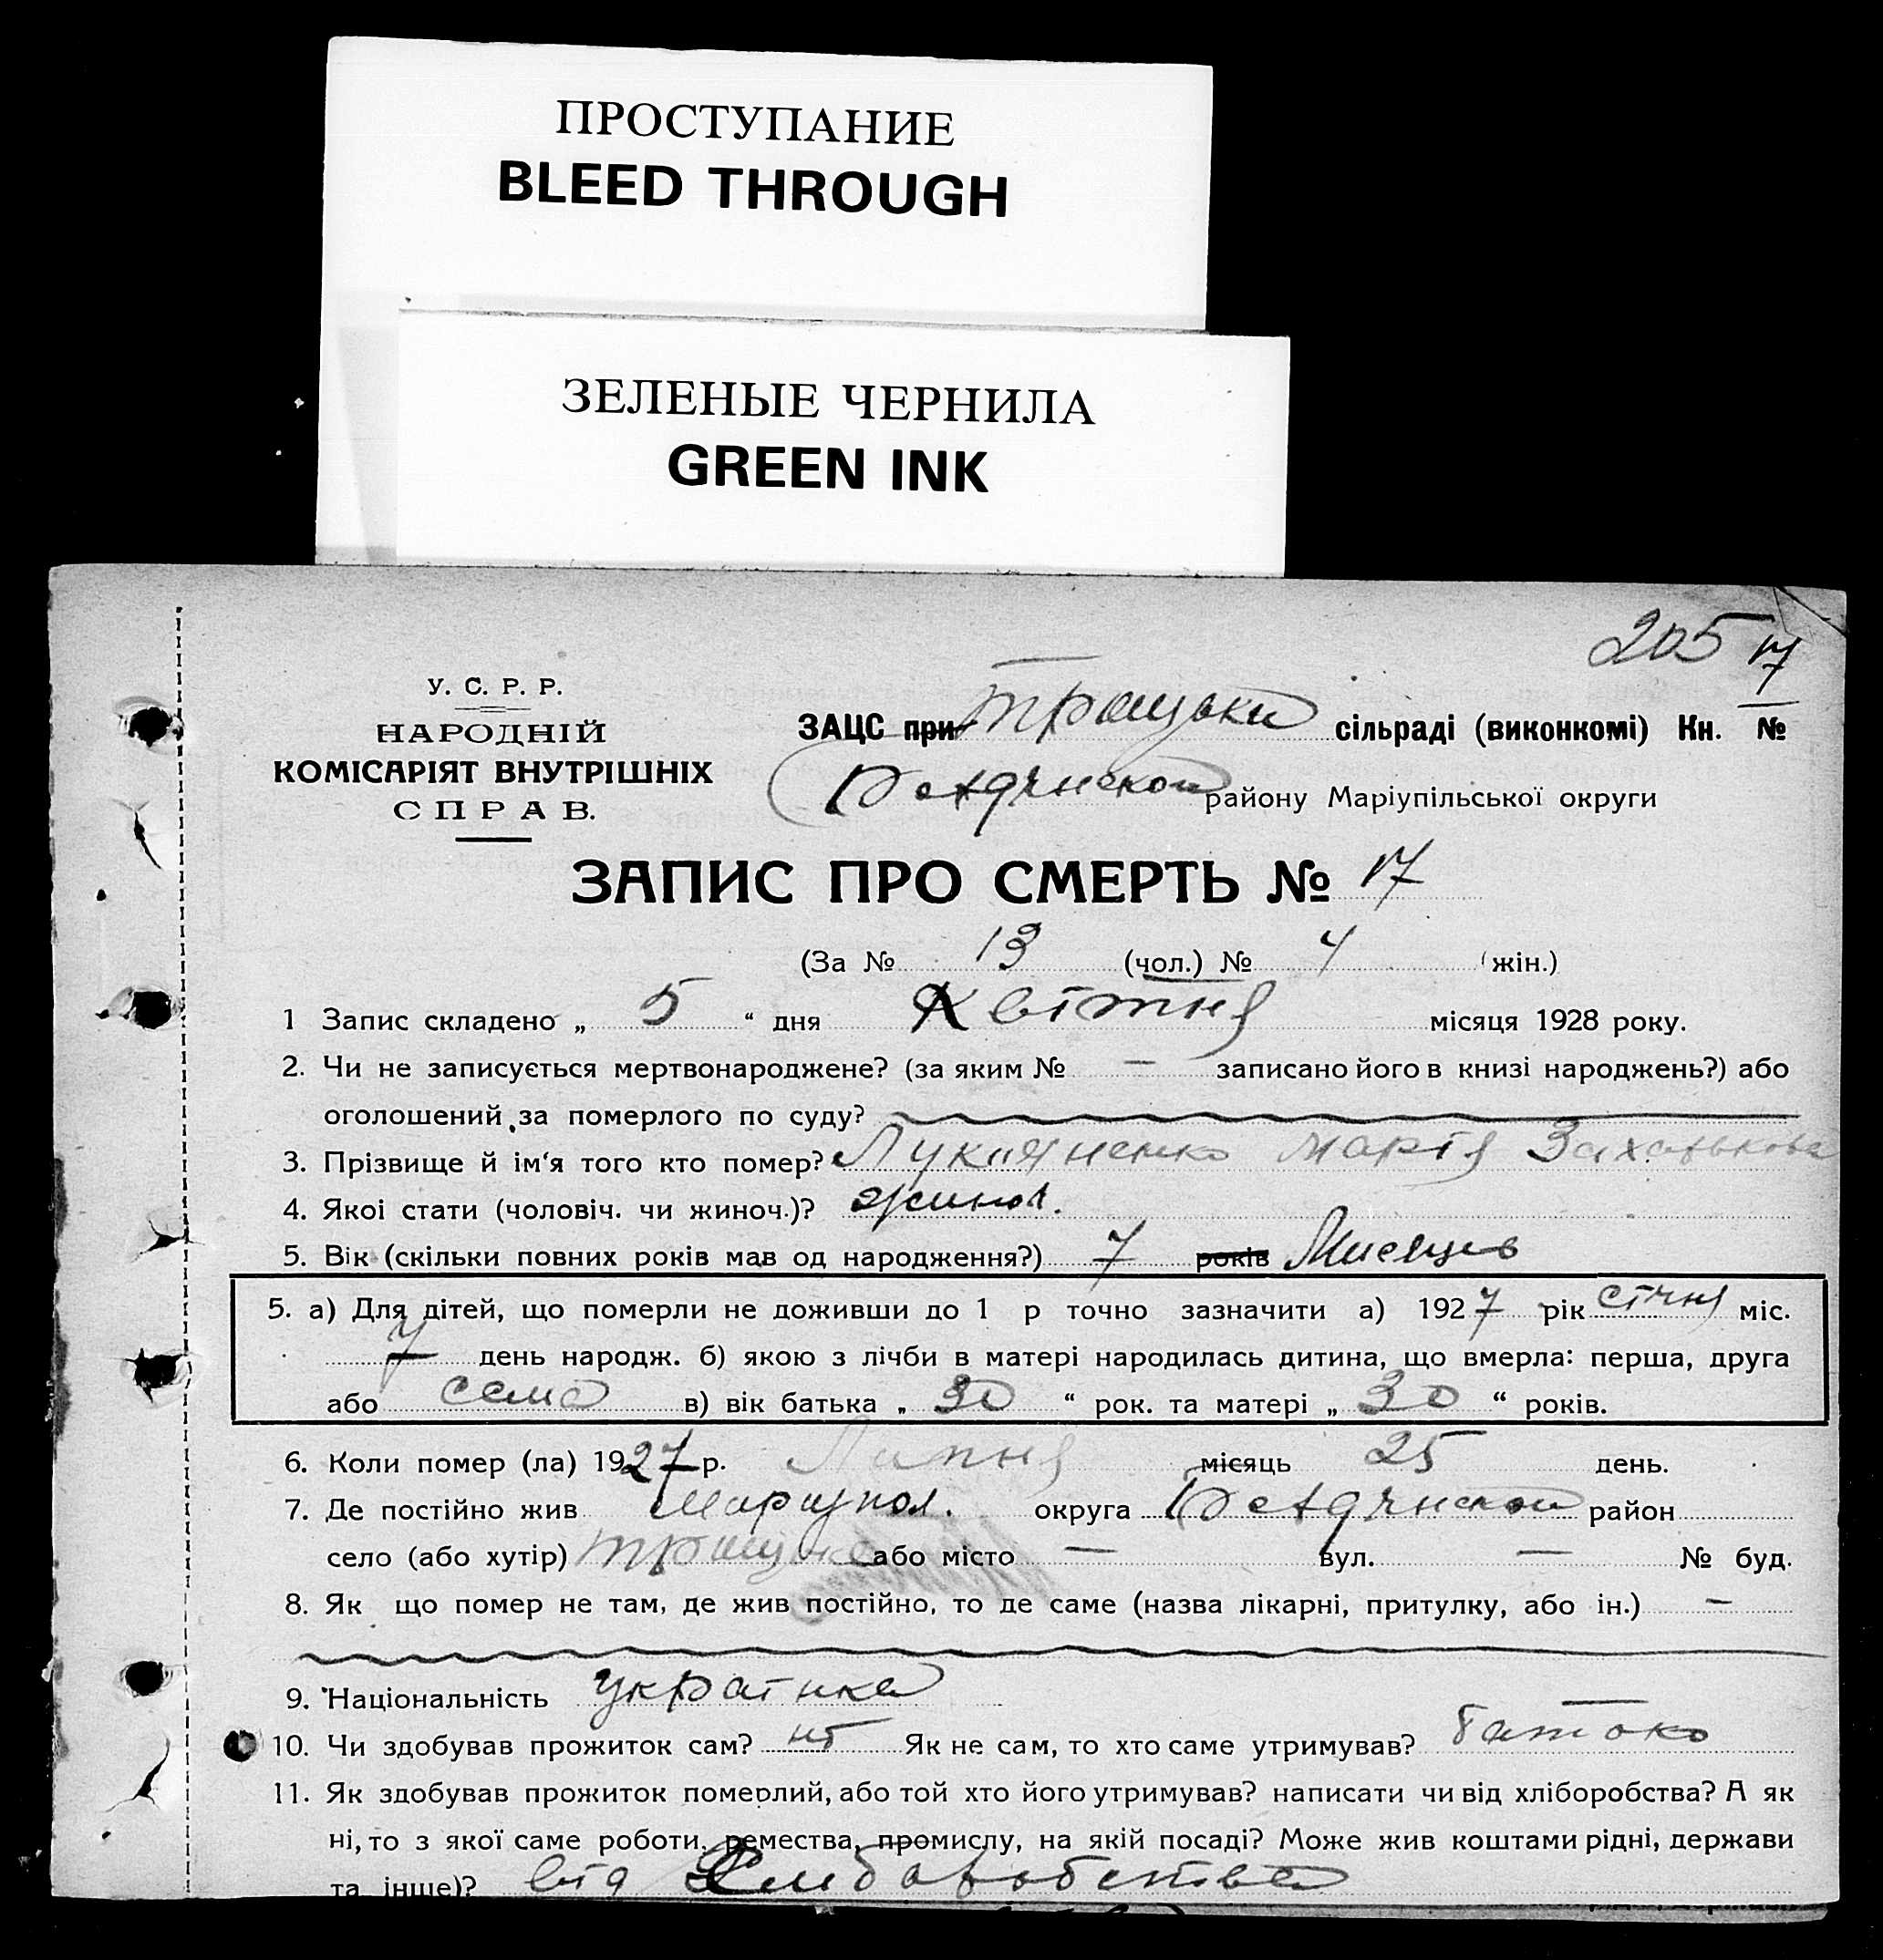 ПРОСТУПАНИЕ
BLEED THROUGH
ЗЕЛЕНЫЕ ЧЕРНИЛА
GREEN INK
205 17
У. С. Р. Р.
НАРОДНІЙ
КОМІСАРІЯТ ВНУТРІШНІХ
СПРАВ.
ЗАЦС при сільраді (виконкомі) Кн. №
району Маріупільської округи
ЗАПИС ПРО СМЕРТЬ № 17
(За № 13 (чол.) № 4 (жін.)
1 Запис складено „ 5 “ дня Квітня місяця 1928 року.
2. Чи не записується мертвонароджене? (за яким № — записано його в книзі народжень?) або
оголошений за померлого по суду?
3. Прізвище й ім‘я того кто помер? Лукияненко Марія
4. Якоі стати (чоловіч. чи жиноч.)? жиноч.
5. Вік (скільки повних років мав од народження?) 7 років Мисяцев
5. а) Для дітей, що померли не доживши до 1 р точно зазначити а) 1927 рік січня міс.
7 день народж. б) якою з лічби в матері народилась дитина, що вмерла: перша, друга
або семо в) вік батька „ 30 “ рок. та матері „ 30 “ років.
6. Коли помер (ла) 1927 р. Липня місяць 25 день.
7. Де постійно жив Мариупол. округа район
село (або хутір) або місто — вул. — № буд.
8. Як що помер не там, де жив постійно, то де саме (назва лікарні, притулку, або ін.) —
9. Національність українка
10. Чи здобував прожиток сам? ні Як не сам, то хто саме утримував? батько
11. Як здобував прожиток померлий, або той хто його утримував? написати чи від хліборобства? А як
ні, то з якої саме роботи, ремества, промислу, на якій посаді? Може жив коштами рідні, держави
та інше)? від Хлиборобства